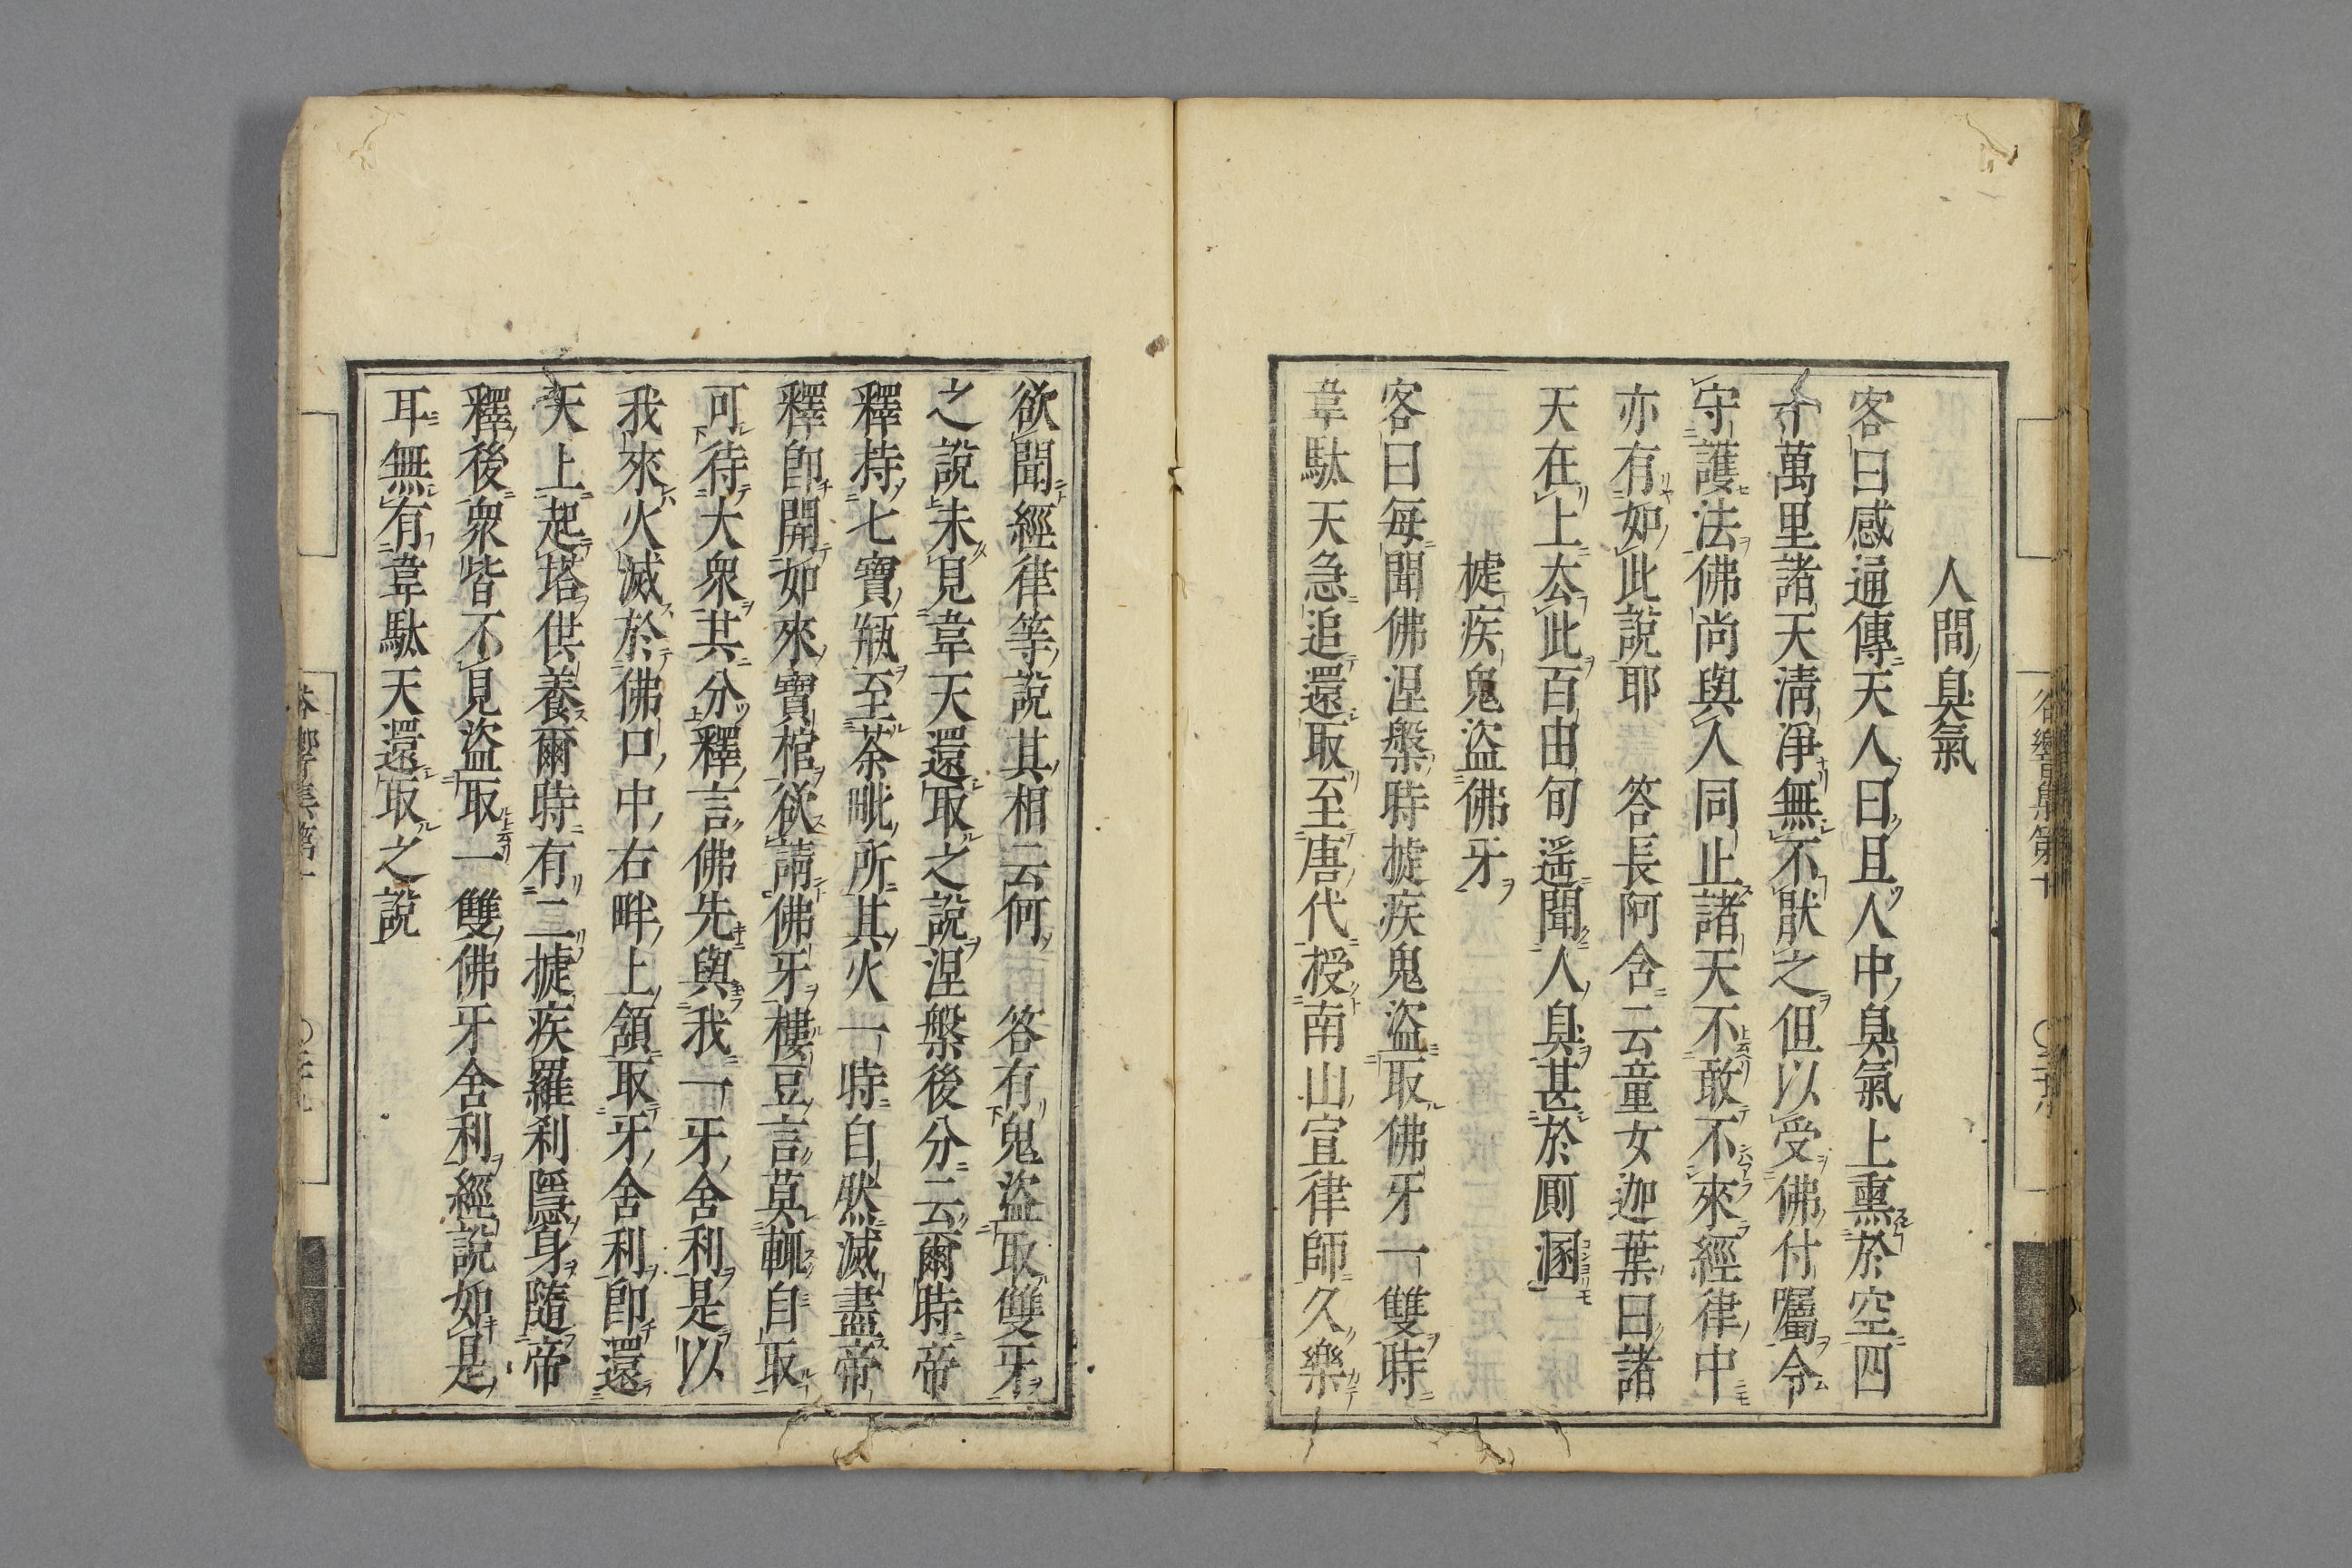 人間臭氣
客曰感通傳天人曰且人中臭氣上熏於空四
十萬里諸天清淨無不猒之但以受佛付囑令
守護法佛尚與人同止諸天不敢不來經律中
亦有如此說耶　答長阿含云童女迦葉曰諸
天在上去此百由旬遥聞人臭甚於厠溷
㨗疾鬼盜佛牙
客曰每聞佛涅槃時㨗疾鬼盜取佛牙一雙時
韋駄天急追還取至唐代授南山宣律師久樂
欲聞經律等說其相云何　答有鬼盜取雙牙
之說未見韋天還取之說涅槃後分云爾時帝
釋持七寶瓶至茶毗所其火一時自然滅盡帝
釋卽開如來寶棺欲請佛牙樓豆言莫輙自取
可待大衆共分釋言佛先與我一牙舍利是以
我來火滅於佛口中右畔上頷取牙舍利卽還
天上起塔供養爾時有二㨗疾羅刹隱身隨帝
釋後衆皆不見盜取一雙佛牙舍利經說如是
耳無有韋駄天還取之說